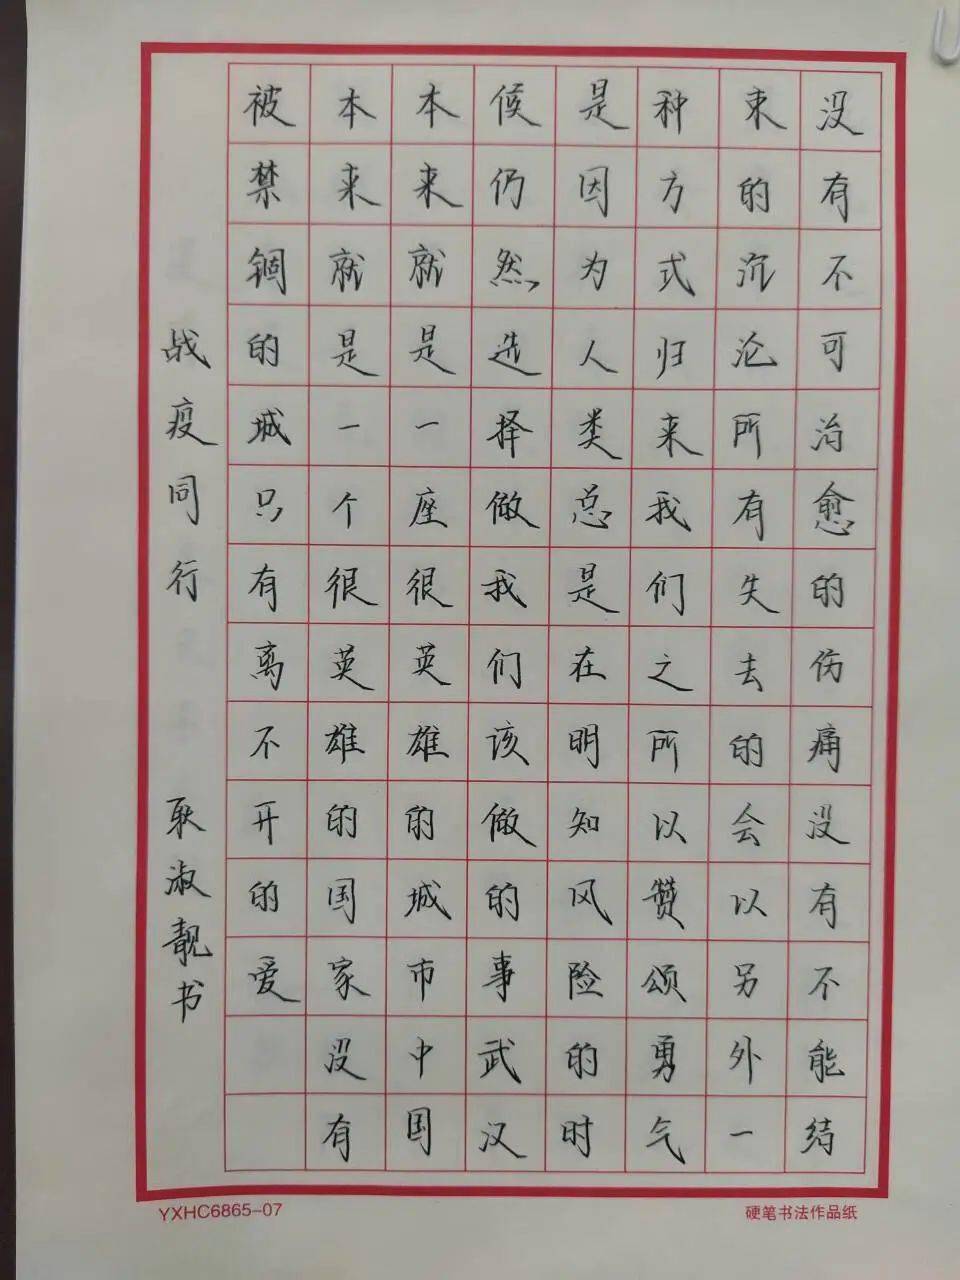 没有不可治愈的伤痛没有不能结
束的沉沦所有失去的会以另外一
种方式归来我们之所以赞颂勇气
是因为人类总是在明知风险的时
候仍然选择做我们该做的事武汉
本来就是一座很英雄的城市中国
本来就是一个很英雄的国家没有
被禁锢的城只有离不开的爱
战疫同行 耿淑靓书
YXHC6865-07
硬笔书法作品纸